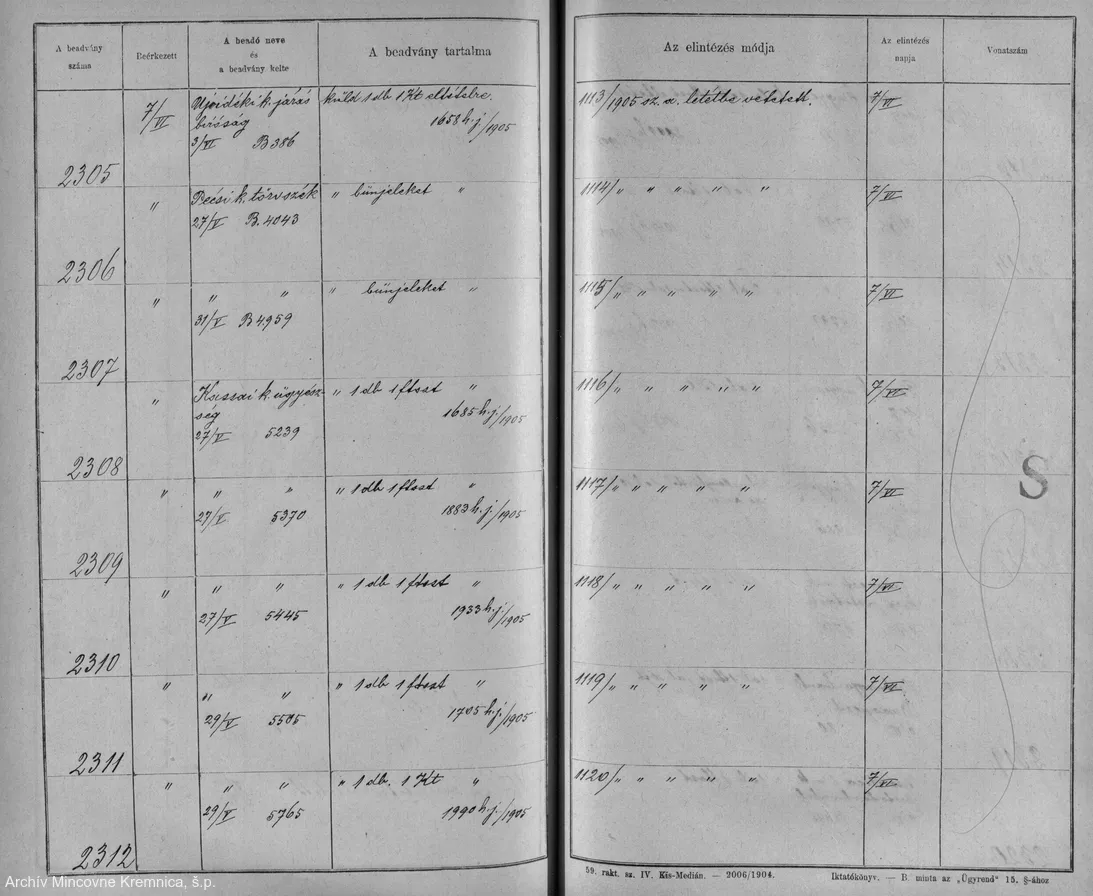 A beadvány száma
Beérkezett
A beadó neve és a beadvány kelte
A beadvány tartalma
Az elintézés módja
Az elintézés napja
Vonatszám
2305
7/VI
Ujvidéki k. járás
biróság
3/VI B 386
küld 1 db 1 Kt eltétélre.
1658 h.j./1905
1113/1905 sz. a. letétbe vétetett.
7/VI
2306
"
Pécsi k. törvszék
27/V B. 4043
" bünjeleket "
1114/ " " " " "
7/VI
2307
"
" "
31/V B 4959
" bünjeleket "
1115/ " " " " "
7/VI
2308
"
Kassai k. ügyész-
ség
27/V 5239
" 1 db 1 ftost "
1685 h.j./1905
1116/ " " " " "
7/VI
2309
"
" "
27/V 5370
" 1 db 1 ftost "
1883 h.j./1905
1117/ " " " " "
7/VI
2310
"
" "
27/V 5445
" 1 db 1 ftost "
1933 h.j./1905
1118/ " " " " "
7/VI
2311
"
" "
29/V 5505
" 1 db 1 ftost "
1705 h.j./1905
1119/ " " " " "
7/VI
2312
"
" "
29/V 5765
" 1 db. 1 Kt "
1990 h.j./1905
1120/ " " " " "
7/VI
S
59. rakt. sz. IV. Kis-Medián. — 2006/1904.
Iktatókönyv. — B. minta az „Ügyrend" 15. §-ához
Archív Mincovne Kremnica, š.p.